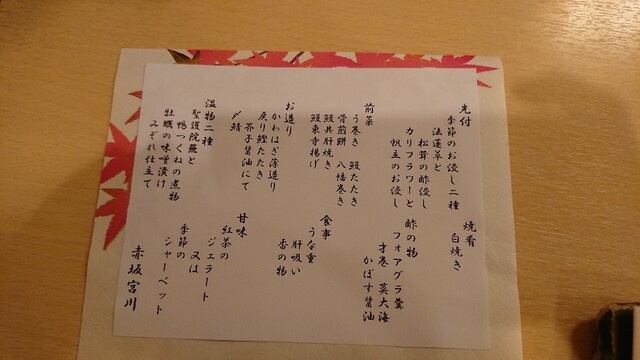 先付
季節のお浸し二種
法蓮草と
松茸の酢浸し
カリフラワーと
帆立のお浸し
前菜
う巻き 鰻たたき
骨煎餅 八幡巻き
鰻共肝焼き
鰻東寺揚げ
お造り
かわはぎ薄造り
戻り鰹たたき
芥子醤油にて
〆鯖
温物二種
聖護院蕪と
鴨つくねの煮物
牡蠣の味噌漬け
みぞれ仕立て
焼肴
白焼き
酢の物
フォアグラ羹
才巻 莫大海
かぼす醤油
食事
うな重
肝吸い
香の物
甘味
紅茶の
ジェラート
又は
季節の
シャーベット
赤坂宮川